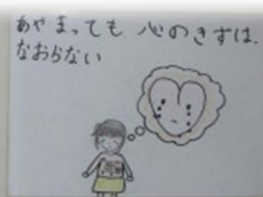 あやまっても 心のきずは、
なおらない